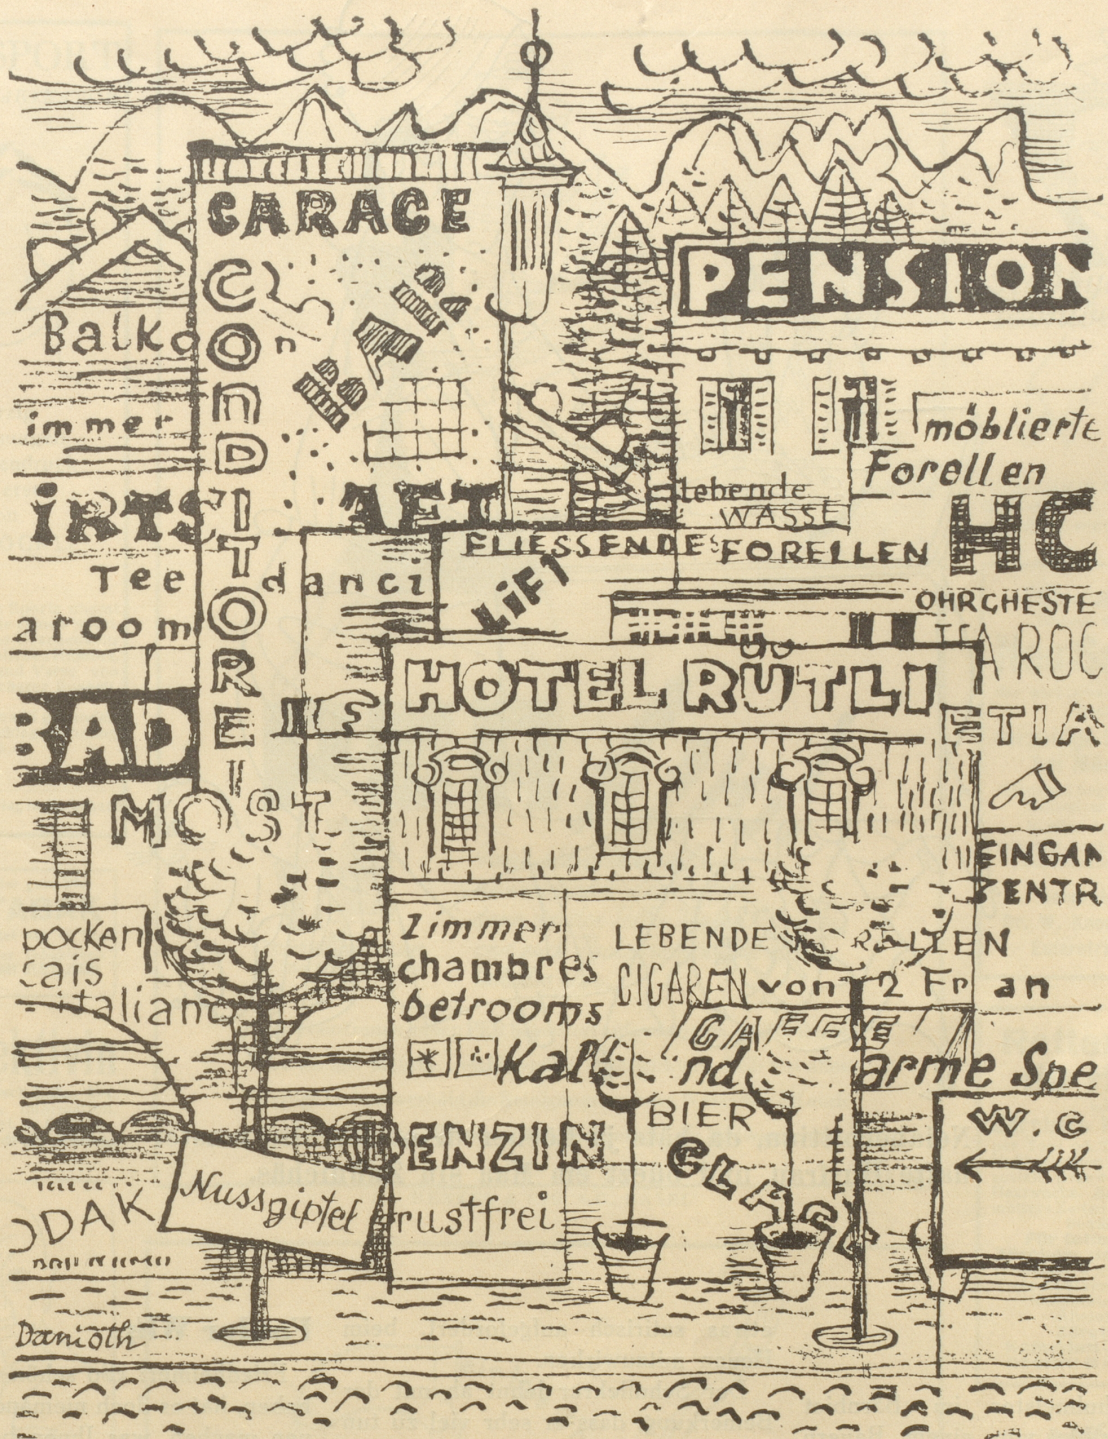 GARAGE
CONDITOREI
BAR
PENSION
Balkon
immer
möblierte
Forellen
lebende
WASSE
IRTS AFT
HO
FLIESSENDES FORELLEN
Tee danci
LIFT
OHRCHESTE
aroom
HOTEL RÜTLI
BAD
ETIA
MOST
EINGAN
ZENTR
pocken
cais
italiano
Zimmer
chambres
betrooms
LEBENDE FORELLEN
CIGAREN von 2 Fr an
CAFFE
Kal nd arme Spe
BIER
W.C
BENZIN
GLACE
Nussgipfel
ODAK
frustfrei
Danioth